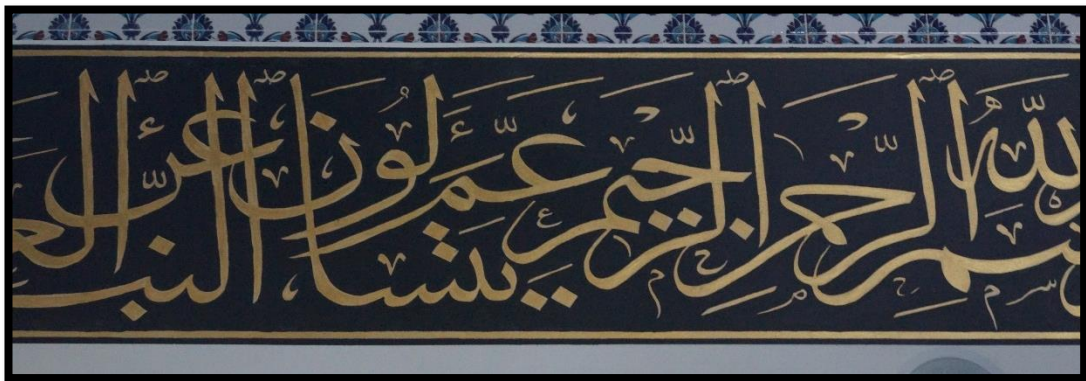 بسم الله الرحمن الرحيم عم يتساءلون عن النبإ الع